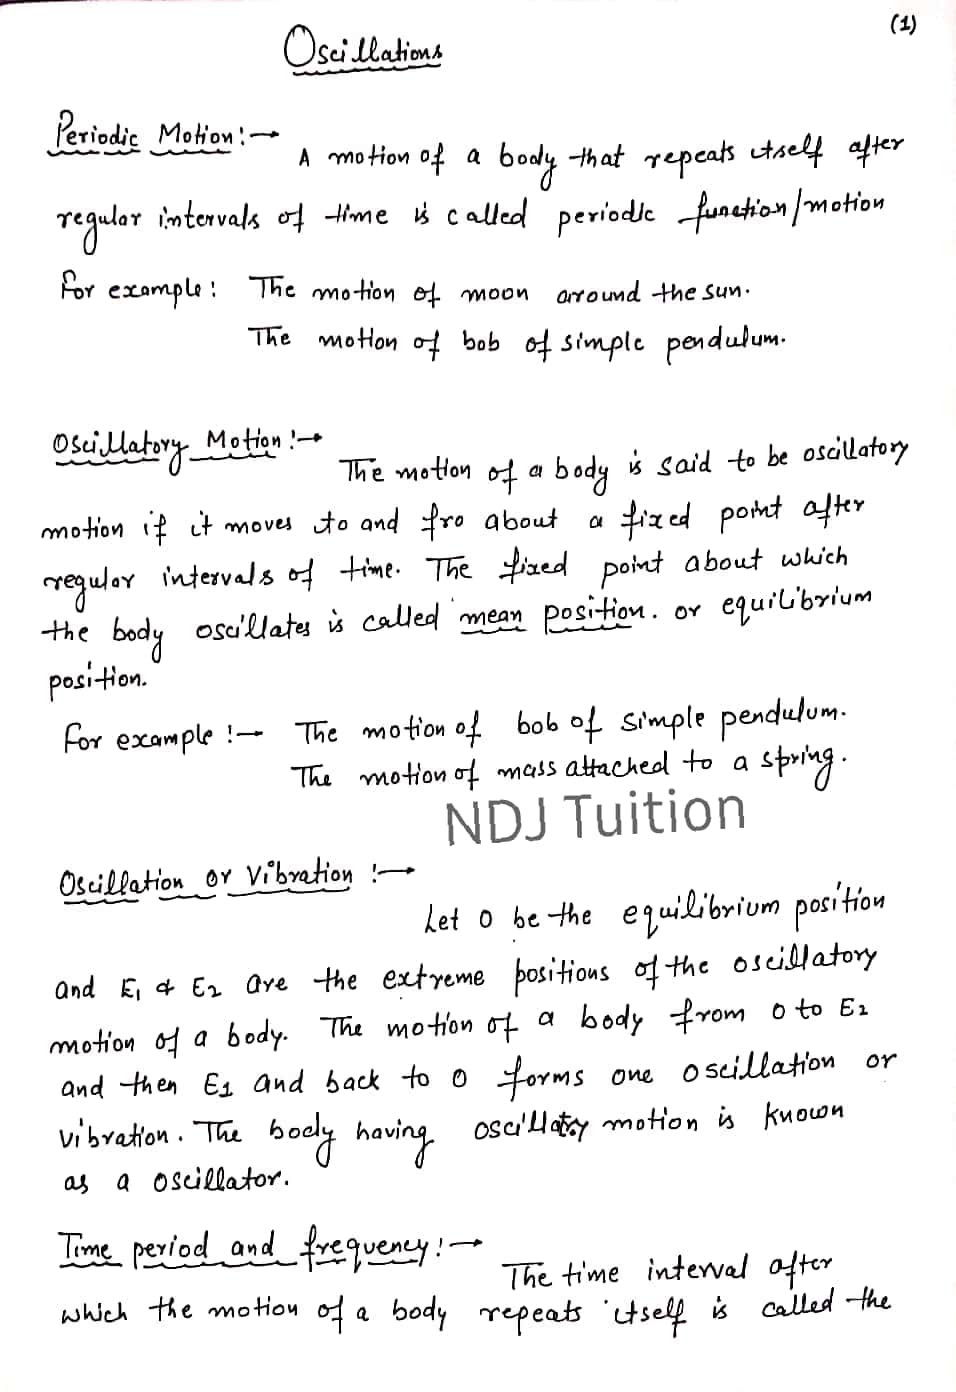 (1)
Oscillations
Periodic Motion:→
A motion of a body that repeats itself after
regular intervals of time is called periodic function/motion
For example: The motion of moon around the sun.
The motion of bob of simple pendulum.
Oscillatory Motion:→
The motion of a body is said to be oscillatory
motion if it moves to and fro about a fixed point after
regular intervals of time. The fixed point about which
the body oscillates is called mean position. or equilibrium
position.
For example:- The motion of bob of simple pendulum.
The motion of mass attached to a spring.
NDJ Tuition
Oscillation or Vibration:→
Let O be the equilibrium position
and E1 & E2 are the extreme positions of the oscillatory
motion of a body. The motion of a body from O to E2
and then E1 and back to O forms one oscillation or
vibration. The body having oscillatory motion is known
as a oscillator.
Time period and frequency:→
The time interval after
which the motion of a body repeats itself is called the